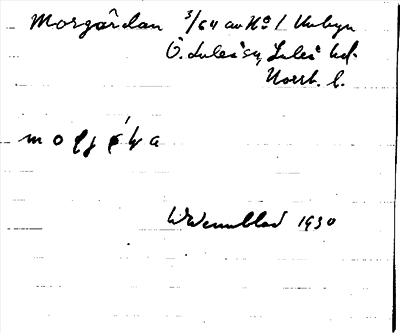 Morgårdan 3/64 av No 1 Unbyn
Ö. Luleå sn, Luleå hd.
Norrb. l.
W Wennblad 1930